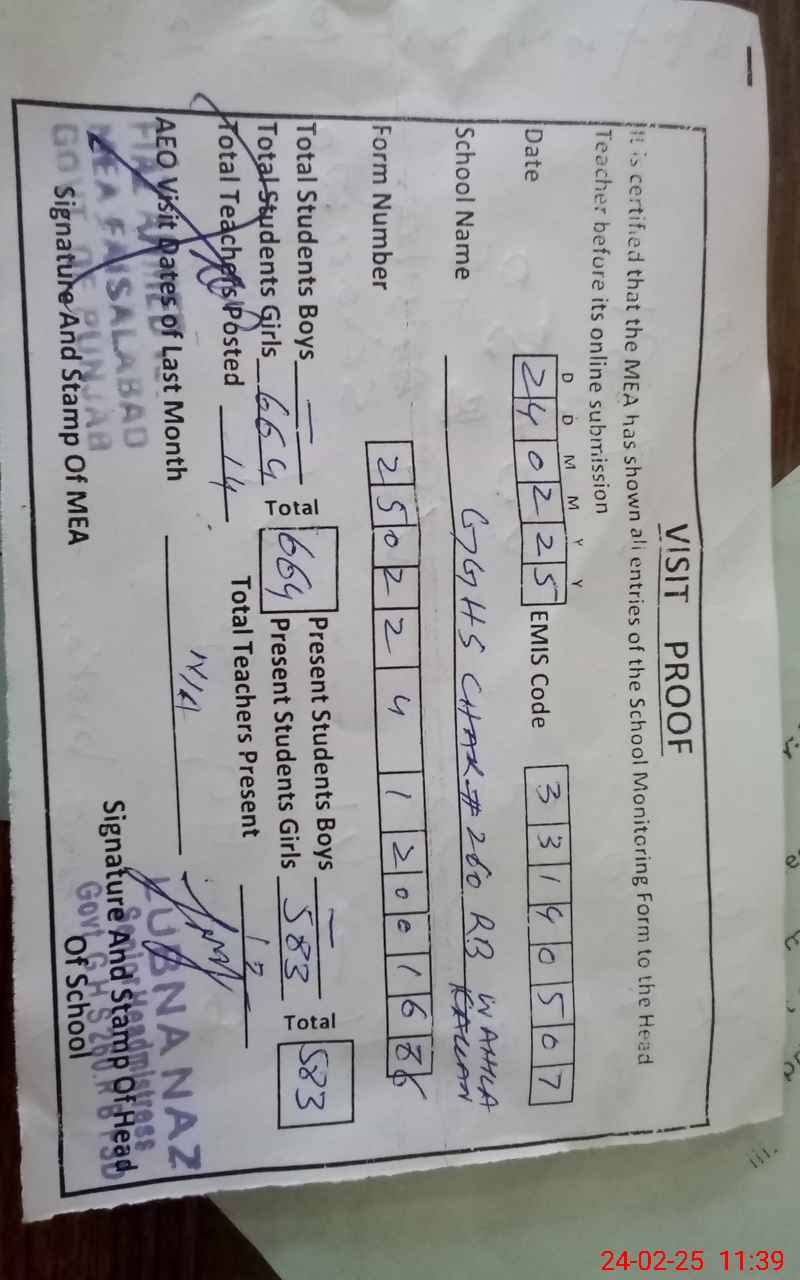 VISIT PROOF
It is certified that the MEA has shown all entries of the School Monitoring Form to the Head
Teacher before its online submission
D D M M Y Y
Date 240225 EMIS Code 33140507
School Name GGHS CHAK # 260 RB WAHLA
KALLAN
Form Number 250224120016
Total Students Boys — Present Students Boys —
Total Students Girls 664 Total 664 Present Students Girls 583 Total 583
Total Teachers Posted 14 Total Teachers Present
AEO Visit Dates of Last Month N/A
MEA FAISALABAD
GOVT OF PUNJAB
Signature And Stamp Of MEA
LUBNA NAZ
Senior Headmistress
Govt G H S 260 R B FSD
Signature And Stamp Of Head
Of School
iii.
24-02-25 11:39